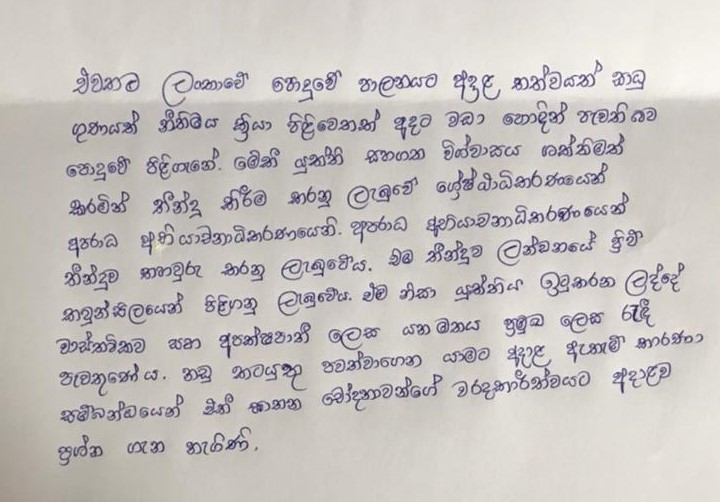 ඒවකම ලංකාවේ පොදුවේ පාලනයට අදළ තත්වයත් සාධු
ගුණයත් නීතිමය ක්‍රියා පිළිවෙතත් අදට වඩා හොඳින් පැවති බව
පොදුවේ පිළිගැනේ. මෙකී යුක්ති සහගත විශ්වාසය ශක්තිමත්
කරමින් තීන්දු කිරීම කරනු ලැබුවේ ශ්‍රේෂ්ඨාධිකරණයෙන්
අපරාධ අභියාචනාධිකරණයෙනි. අපරාධ අභියාචනාධිකරණයෙන්
තීන්දුව තහවුරු කරනු ලැබුවේය. එම තීන්දුව ලන්ඩනයේ ප්‍රිවි
කවුන්සිලයෙන් පිළිගනු ලැබුවේය. එම නිසා යුක්තිය ඉටුකරන ලද්දේ
වාස්තවිකව සහ අපක්ෂපාතී ලෙස යන මතය ප්‍රමුඛ ලෙස රැඳී
පැවතුණේය. නඩු කටයුතු පවත්වාගෙන යාමට අදාළ ඇතැම් කාරණා
සම්බන්ධයෙන් එකී ඝාතන චෝදනාවන්ගේ වරදකාරීත්වයට අදාළව
ප්‍රශ්න ගැන නැගිණි.